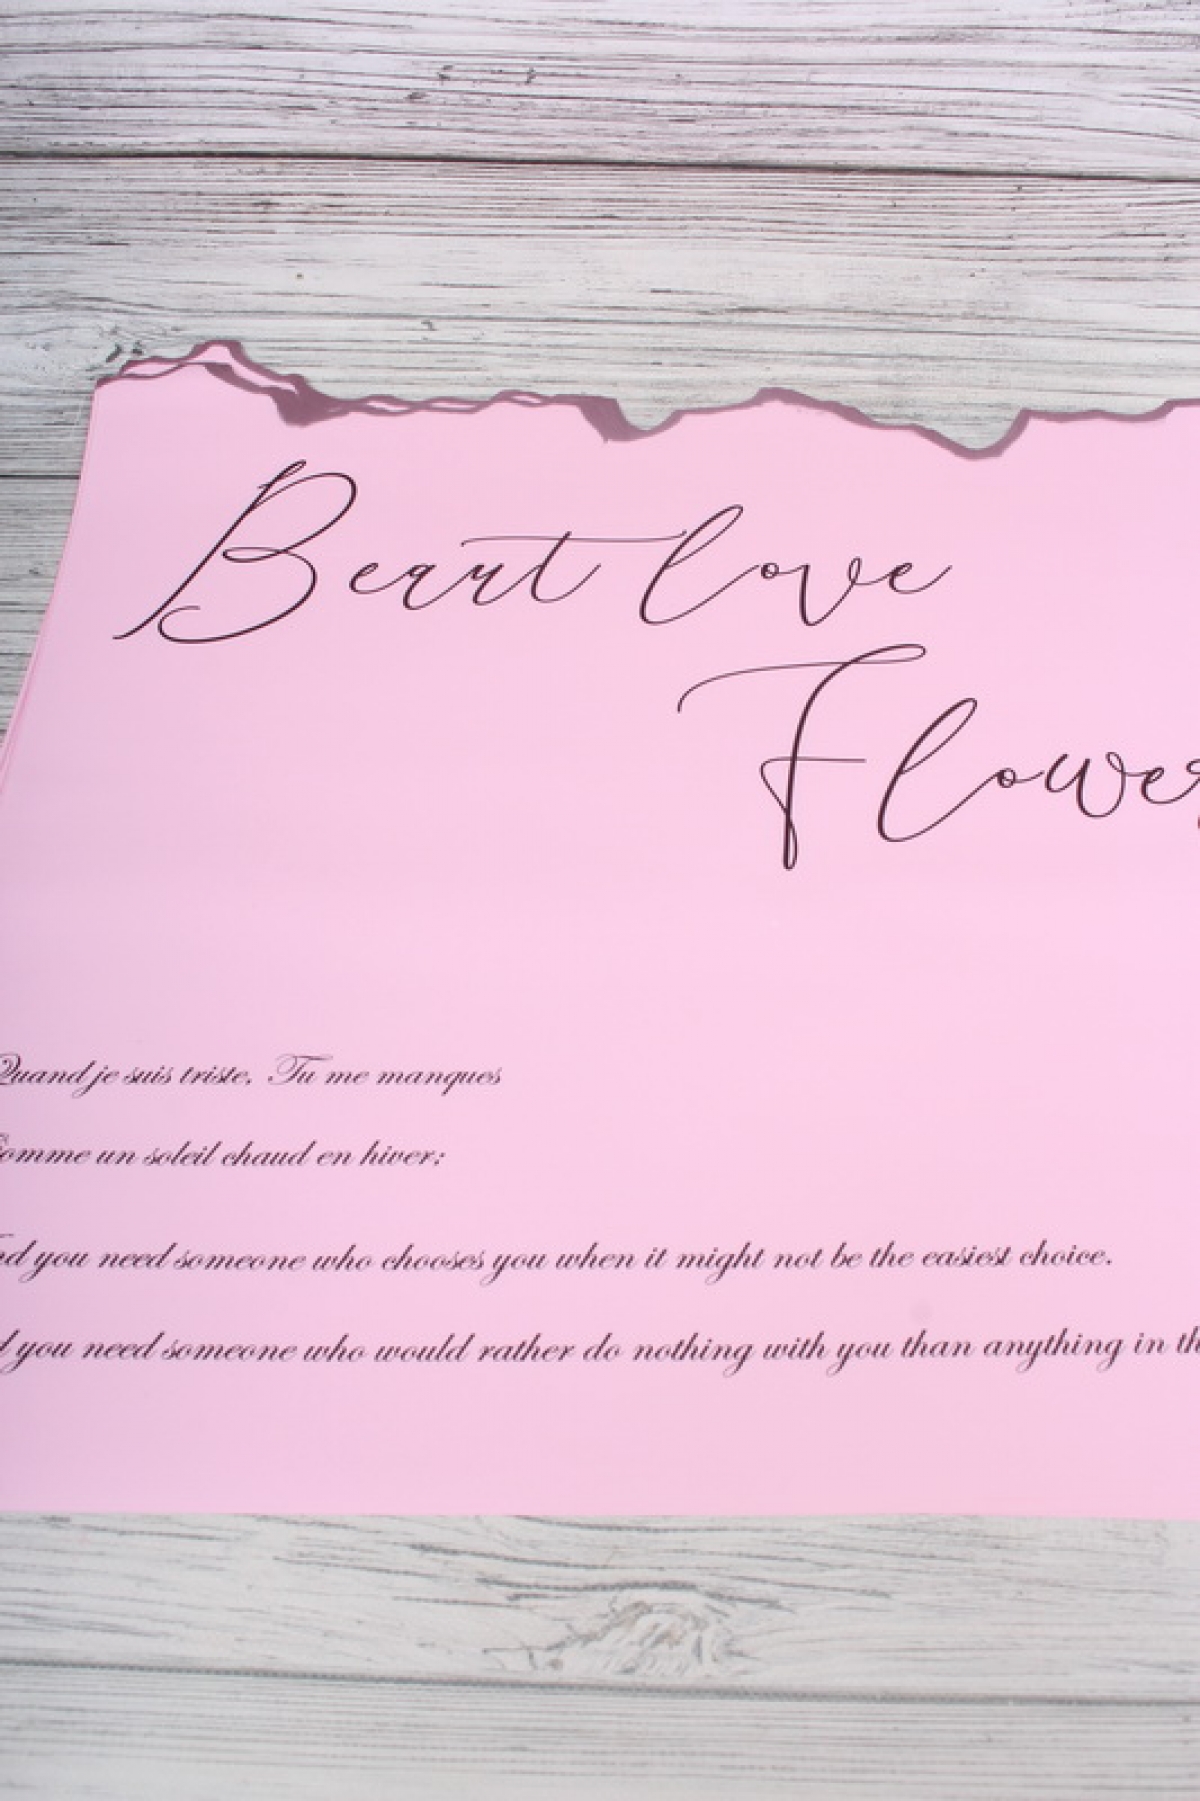 Beart love
Flower
Quand je suis triste, Tu me manques
Comme un soleil chaud en hiver;
you need someone who chooses you when it might not be the easiest choice.
you need someone who would rather do nothing with you than anything in